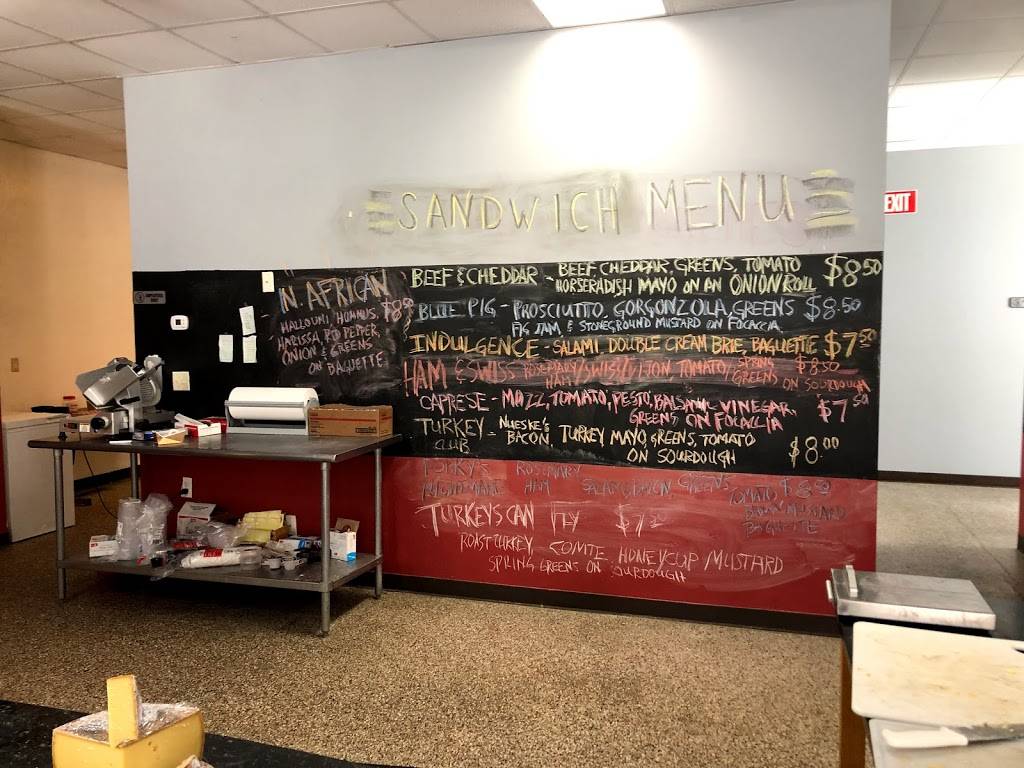 SANDWICH MENU
EXIT
N. AFRICAN
$8.50
HALLOUMI, HUMMUS,
HARISSA, RED PEPPER,
ONION & GREENS
ON BAGUETTE
BEEF & CHEDDAR - BEEF CHEDDAR, GREENS, TOMATO $8.50
HORSERADISH MAYO ON AN ONION ROLL
BLUE PIG - PROSCIUTTO, GORGONZOLA, GREENS $8.50
FIG JAM & STONEGROUND MUSTARD ON FOCACCIA
INDULGENCE - SALAMI, DOUBLE CREAM BRIE, BAGUETTE $7.50
HAM & SWISS ROSEMARY HAM/SWISS/ TOMATO/ SPRING GREENS ON SOURDOUGH $8.50
CAPRESE - MOZZ, TOMATO, PESTO, BALSAMIC VINEGAR, $7.50
GREENS ON FOCACCIA
TURKEY CLUB - NUESKE'S BACON, TURKEY, MAYO, GREENS, TOMATO
ON SOURDOUGH $8.00
PORKY'S ROSEMARY
HAM SALAMI, GREENS TOMATO
MUSTARD
BAGUETTE
TURKEYS CAN FLY $7.50
ROAST TURKEY, COMTE, HONEYCUP MUSTARD
SPRING GREENS ON SOURDOUGH